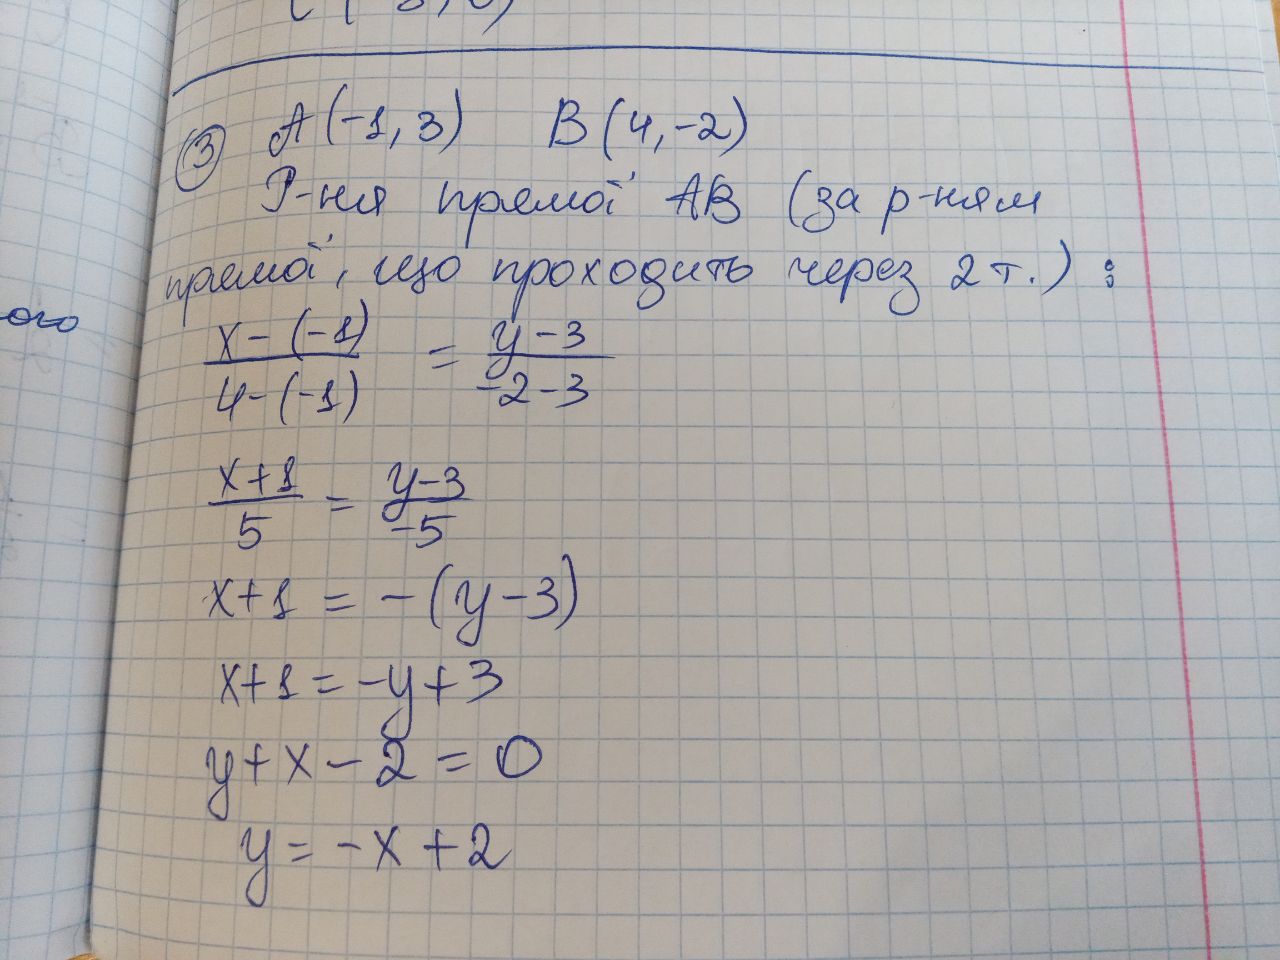 ③ A(-1, 3) B(4, -2)
Р-ня прямої AB (за р-ням
прямої, що проходить через 2 т.) :
ого
x-(-1)/4-(-1) = y-3/-2-3
x+1/5 = y-3/-5
x+1 = -(y-3)
x+1 = -y+3
y+x-2 = 0
y = -x+2